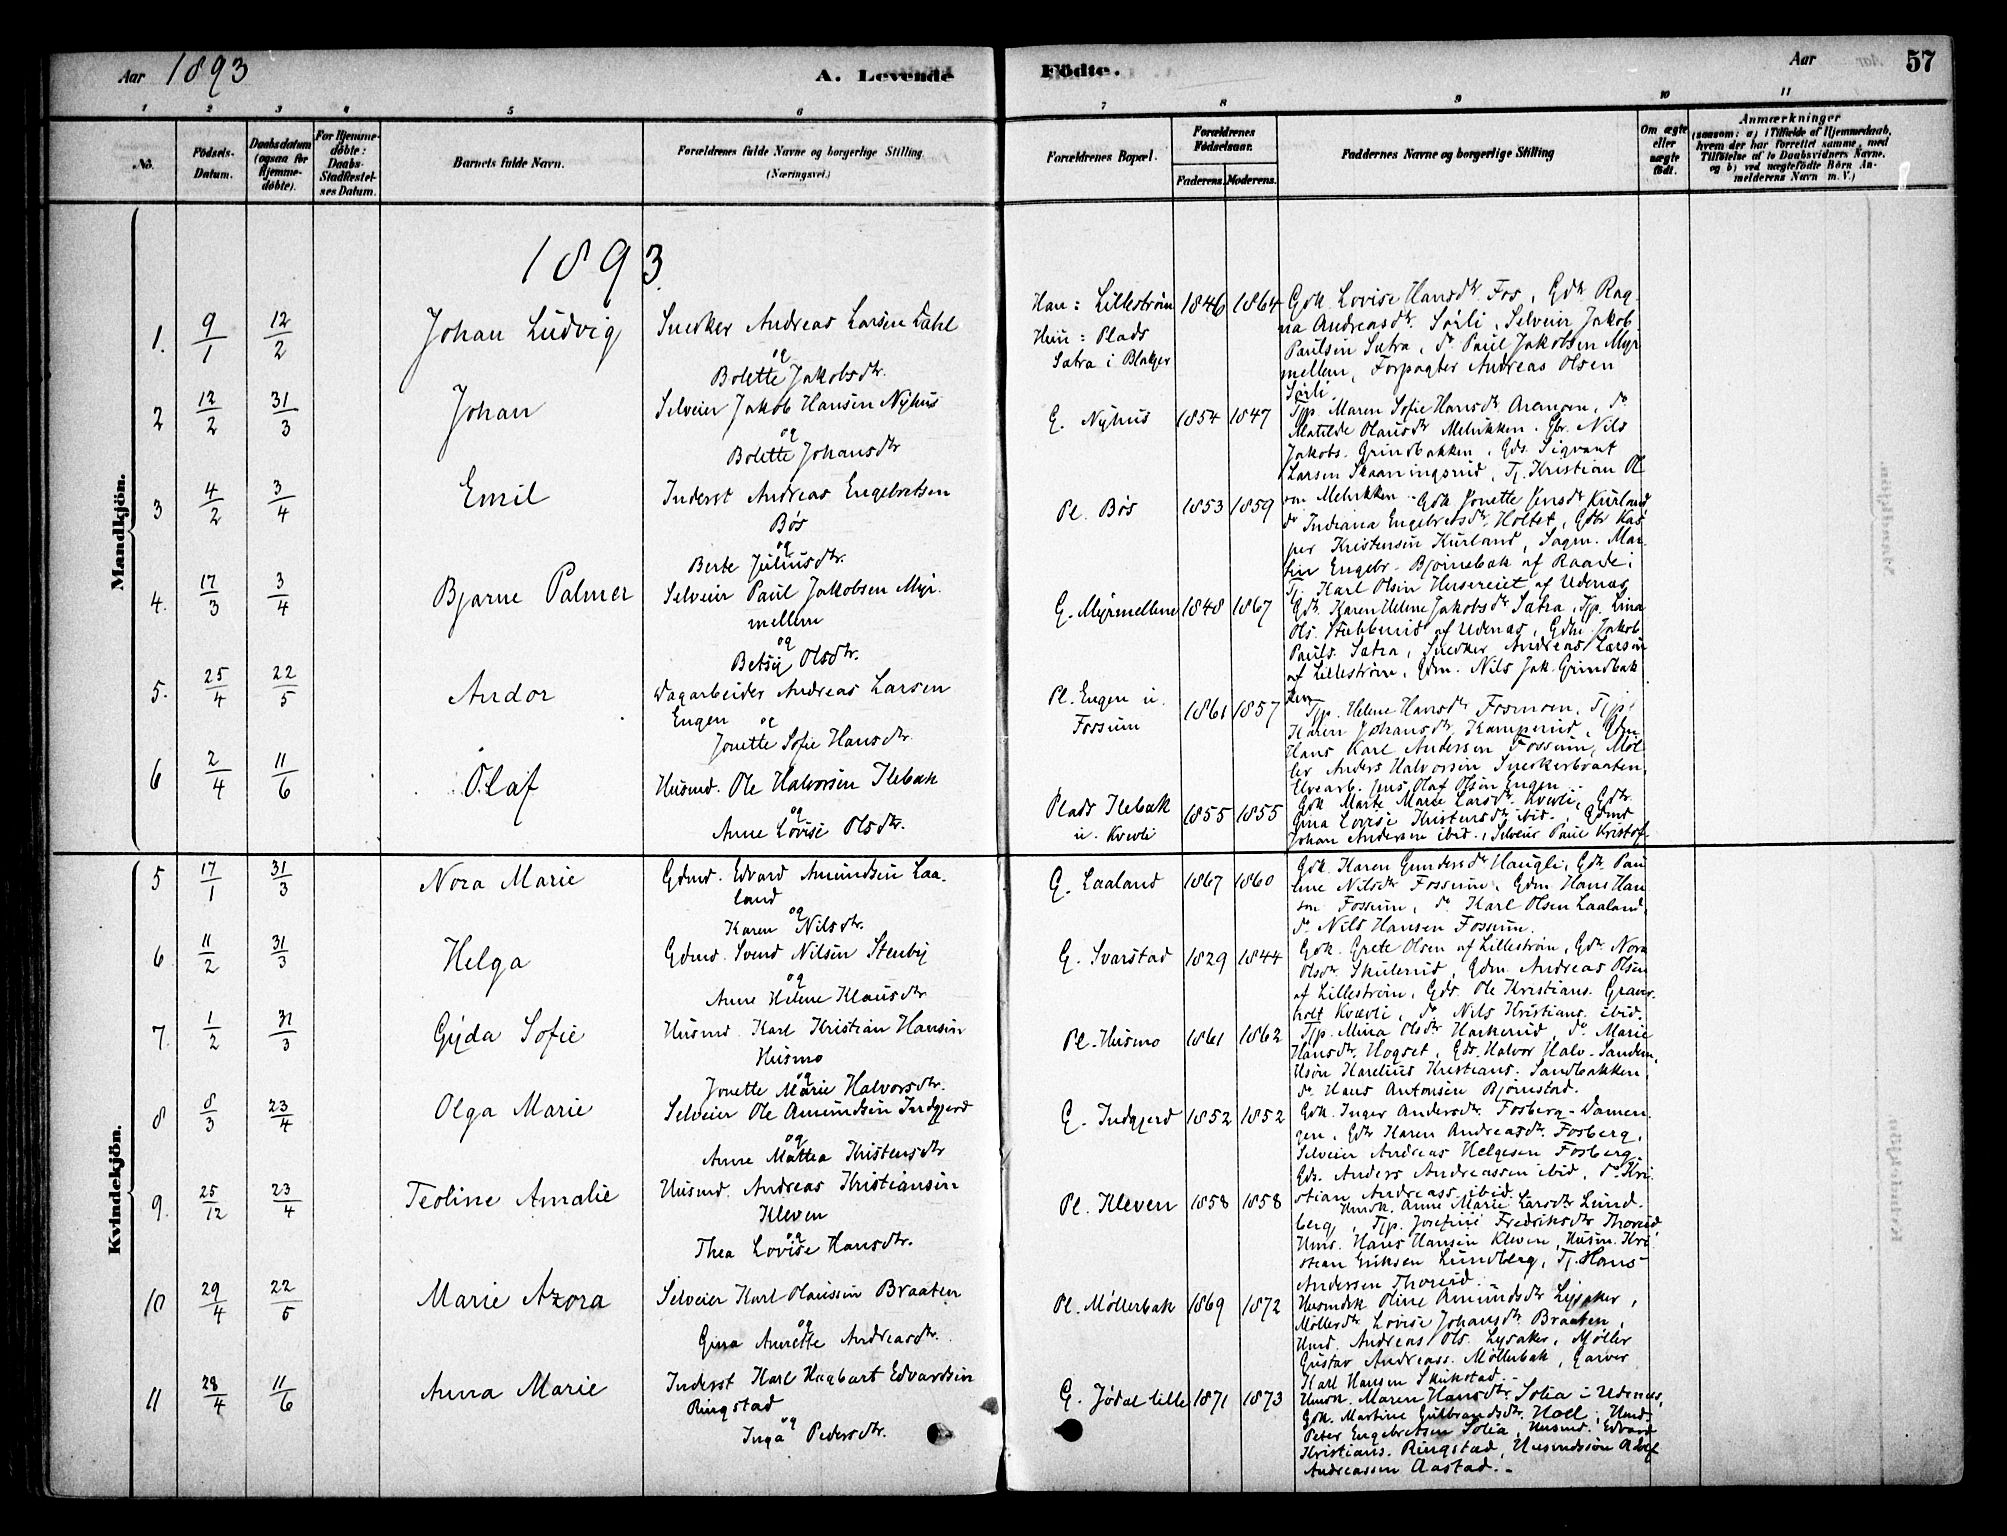 Aar 1893
A. Levende Födte.
Aar
57
1 2 3 4 5 6 7 8 9 10 11
No.
Födsels-Datum.
Daabsdatum (ogsaa for Hjemmedöbte).
For Hjemmedöbte: Daabs-Stadfæstelses Datum.
Barnets fulde Navn.
Forældrenes fulde Navne og borgerlige Stilling. (Næringsvei.)
Forældrenes Bopæl.
Forældrenes Födselsaar.
Faderens. Moderens.
Faddernes Navne og borgerlige Stilling
Om ægte eller uægte födt.
Anmærkninger
(saasom: a) i Tilfælde af Hjemmedaab, hvem der har forrettet samme, med Tilföielse af to Daabsvidners Navne, og b) ved uægtefödte Börn Anmelderens Navn m. V.)
1893
Mandkjön.
1. 9/1 12/2 Johan Ludvig
Snedker Andreas Larsen Dahl
og
Bolette Jakobsdtr.
Han: Lillestrøm
Hun: Plads
Sætra i Blakjer
1846 1864
Gdk. Lovise Hansdtr Fos, Gdtr Rag-
na Andreasdtr. Sörli, Selveier Jakob
Paulsen Sætra, do Paul Jakobsen Myr
mellem, Forpagter Andreas Olsen
Sörli.
2 12/2 31/3 Johan
Selveier Jakob Hansen Nyhus
og
Bolette Johansdtr
G. Nyhus 1854 1847
Tjp. Maren Sofie Hansdtr Aremoen, do
Matilde Olausdtr Melnkken. Gbr. Nils
Jakobs. Grindbakken, Gds. Sigvart
Larsen Skaaningsrud, Tj. Kristian Ol
sen Melnkken.
3 4/2 3/4 Emil
Inderst Andreas Engebretsen
Bøs
og
Berte Juliusdtr.
Pl. Bøs 1853 1859
Gdk Jonette Jensdtr Kurland
do Indiana Engebretsdtr. Holtet, Gdbr Kas
per Kristensen Kurland, Sagm. Mar-
tin Engebr. Bjørnebak af Raade i
Tj. Karl Olsen Hersereiet af Udenæs
4. 17/3 3/4 Bjarne Palmer
Selveier Paul Jakobsen Myr-
mellem
og
Betsy Olsdtr.
G. Myrmellem 1848 1867
Gdk. Karen Helene Jakobsdtr Sætra, Tjp. Lina
Ols. Stubberud af Udenæs, Gdm. Jakob
Pauls. Sætra, Snedker Andreas Larsen
af Lillestrøm, Gdm. Nils Jak. Grindbak
ken
5. 25/4 22/5 Andor
Dagarbeider Andreas Larsen
Engen og
Jonette Sofie Hansdtr.
Pl. Engen u.
Fossum
1861 1857
Tjp. Helene Hansdtr Fosmoen, Tjp.
Karen Johansdtr. Kamperud, Gdm
Hans Karl Andersen Fossum, Møl
ler Anders Halvorsen Snedkerbraaten,
Elvearb. Jens Olaf Olsen Engen
6 2/4 11/6 Olaf
Husmd. Ole Halvorsen Ilebak
og
Anne Lovise Olsdtr.
Plads Ilebak
u. Kvevli
1855 1855
Gdk Marte Marie Larsdtr. Kvevli, Gdtr.
Gina Lovise Kristensdtr ibid. Gdmd
Johan Andersen ibid., Selveier Paul Kristof.
Kvindekjön.
5 17/1 31/3 Nora Marie
Gdmd. Edvard Amundsen Laa-
land
og
Karen Nilsdtr.
G. Laaland 1867 1860
Gdk. Karen Gundersdtr Haugli, Gdk. Pau
line Nilsdtr Fossum, Gdm Hans Han
sen Fossum, do Karl Olsen Laaland,
do Nils Hansen Fossum.
6 11/2 31/3 Helga
Gdmd. Svend Nilsen Stenby
og
Anne Helene Klausdtr
G. Svarstad 1829 1844
Gdk. Grete Olsen af Lillestrøm, Gdtr. Nora
Olsdtr. Skulerud, Gdm. Andreas Olsen
af Lillestrøm, Gds. Ole Kristians. Gran-
holt Kvævli, do Nils Kristians. ibid.
7. 1/2 31/3 Gyda Sofie
Husmd. Karl Kristian Hansen
Husmo
og
Jonette Marie Halvorsdtr.
Pl. Husmo 1861 1862
Tjp. Mina Olsdtr Hakkerud, do Marie
Hansdtr. Hogset, Gds. Halvor Halv. Sandem,
Usøn Karelius Kristians. Sandbakken,
do Hans Antonsen Bjørnstad.
8 8/3 23/4 Olga Marie
Selveier Ole Amundsen Indgjerd
og
Anne Mattea Kristensdtr
G. Indgjerd 1852 1852
Gdk. Inger Andersdtr. Fosberg-Damen
gen, Gdtr Karen Andreasdtr. Fosberg,
Selveier Andreas Helgesen Fosberg,
Gds. Anders Andreassen ibid, do Kri
stian Andreass. ibid.
9. 25/12 23/4 Teoline Amalie
Husmd. Andreas Kristiansen
Kleven
og
Thea Lovise Hansdtr.
Pl. Kleven 1858 1858
Husmk. Anne Marie Larsdtr Lund-
berg, Tjp. Josefine Fredriksdtr Thorerud
Hmd. Hans Hansen Kleven, Husm. Kri
stian Eriksen Lundberg, Tj. Hans
Andersen Thorerud.
10 29/4 22/5 Marie Azora
Selveier Karl Olaussen Braaten
og
Gina Annette Andreasdtr.
Pl. Møllerbak 1869 1872
Husmdsk Oline Amundsdtr Lysaker,
Møllerdtr Lovise Johansdtr Braaten,
Hmd. Andreas Ols. Lysaker, Møller
Gustav Andreass. Møllerbak, Garver
Karl Hansen Skirkstad.
11 28/4 11/6 Anna Marie
Inderst Karl Hagbart Edvardsen
Ringstad
og
Inga Pedersdtr.
G. Jødal lille 1871 1873
Hmdk. Maren Hansdtr. Solia i Udenæs,
Gdk. Martine Gulbrandsdtr. Holl, Hmd.
Peter Engebretsen Solia, Husmd. Edvard
Kristians. Ringstad, Husmdssøn Adolf
Andreassen Aastad.